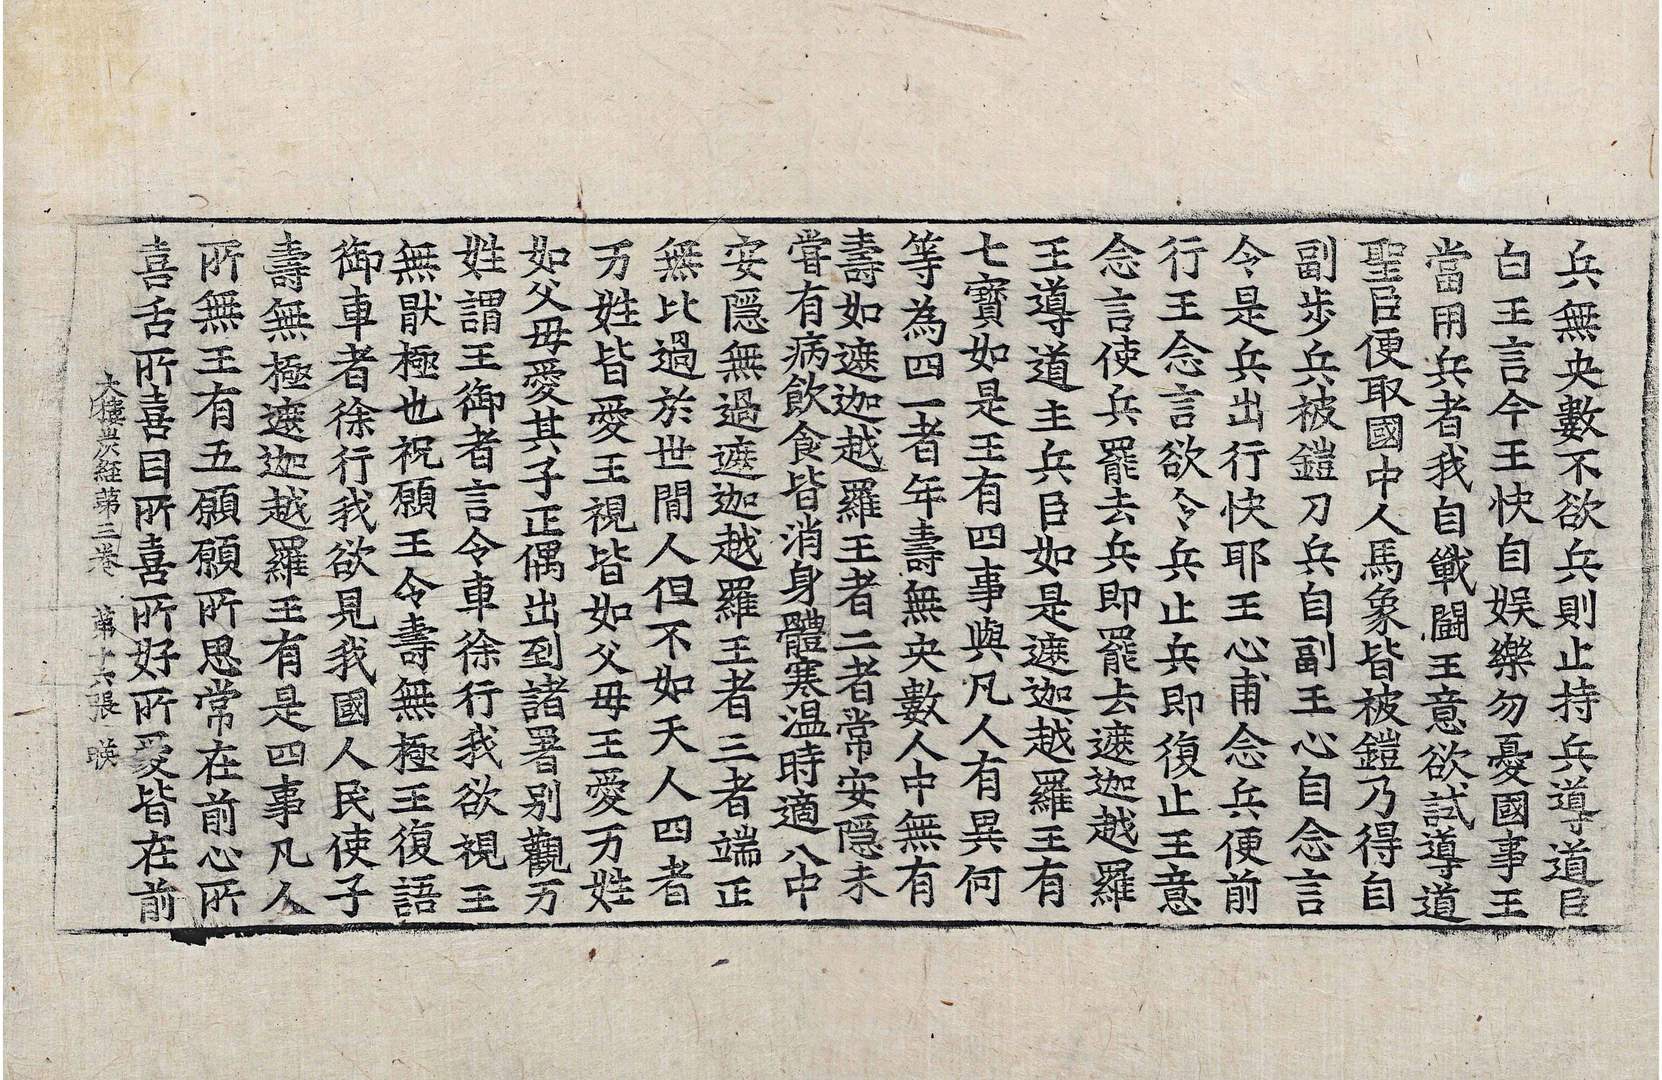 兵無央數不欲兵則止持兵導道臣
白王言今王快自娛樂勿憂國事王
當用兵者我自戰鬪王意欲試導道
聖臣便取國中人馬象皆被鎧乃得自
副步兵被鎧刀兵自副王心自念言
令是兵出行快耶王心甫念兵便前
行王念言欲令兵止兵即復止王意
念言使兵罷去兵即罷去遮迦越羅
王導道主兵臣如是遮迦越羅王有
七寶如是王有四事與凡人有異何
等為四一者年壽無央數人中無有
壽如遮迦越羅王者二者常安隱未
甞有病飲食皆消身體寒温時適八中
安隱無過遮迦越羅王者三者端正
無比過於世間人但不如天人四者
万姓皆愛王視皆如父母王愛万姓
如父母愛其子正偶出到諸署別觀万
姓謂王御者言令車徐行我欲視王
無猒極也祝願王令壽無極王復語
御車者徐行我欲見我國人民使子
壽無極遮迦越羅王有是四事凡人
所無王有五願願所思常在前心所
喜舌所喜目所喜所好所愛皆在前
大樓炭經第三卷 第十六張 暎